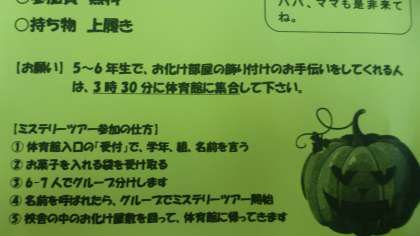 ○参加費 無料
○持ち物 上履き
パパ、ママも是非来て
ね。
【お願い】5〜6年生で、お化け部屋の飾り付けのお手伝いをしてくれる人
は、3時30分に体育館に集合して下さい。
【ミステリーツアー参加の仕方】
① 体育館入口の「受付」で、学年、組、名前を言う
② お菓子を入れる袋を受け取る
③ 6-7人でグループ分けします
④ 名前を呼ばれたら、グループでミステリーツアー開始
⑤ 校舎の中のお化け屋敷を回って、体育館に帰ってきます